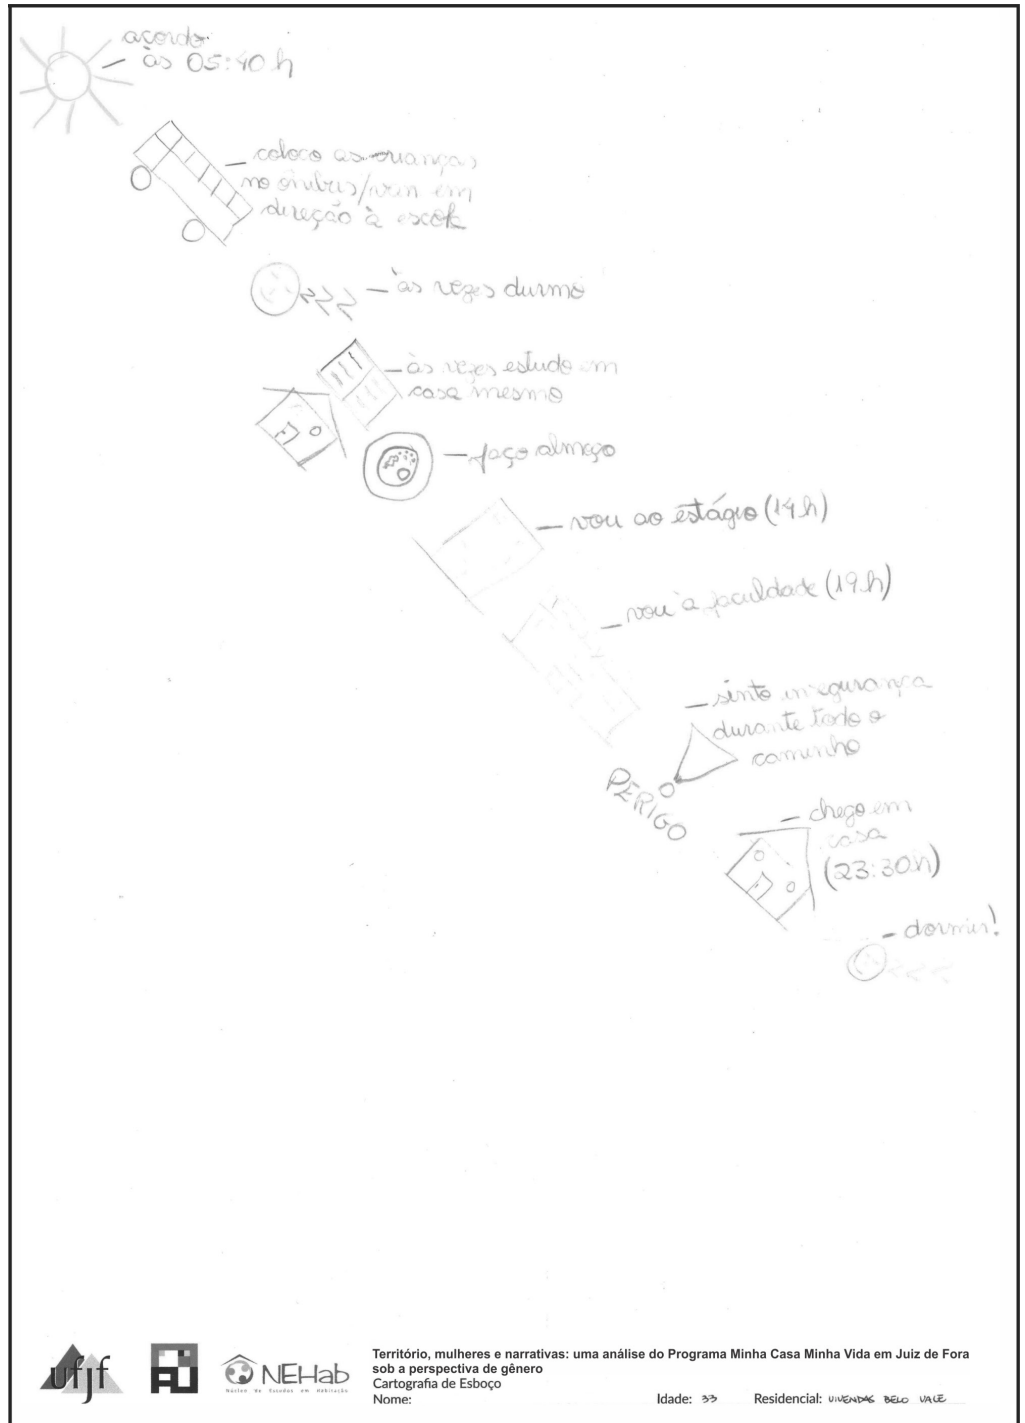 acordo
às 05:40 h
coloco as crianças
no ônibus/van em
direção à escola
às vezes durmo
às vezes estudo em
casa mesmo
faço almoço
vou ao estágio (14h)
vou à faculdade (19h)
sinto insegurança
durante todo o
caminho
PERIGO
chego em
casa
(23:30h)
dormir!
ufjf
NEHab
Núcleo de Estudos em Habitação
Território, mulheres e narrativas: uma análise do Programa Minha Casa Minha Vida em Juiz de Fora
sob a perspectiva de gênero
Cartografia de Esboço
Nome: Idade: 33 Residencial: VIVENDAS BELO VALE